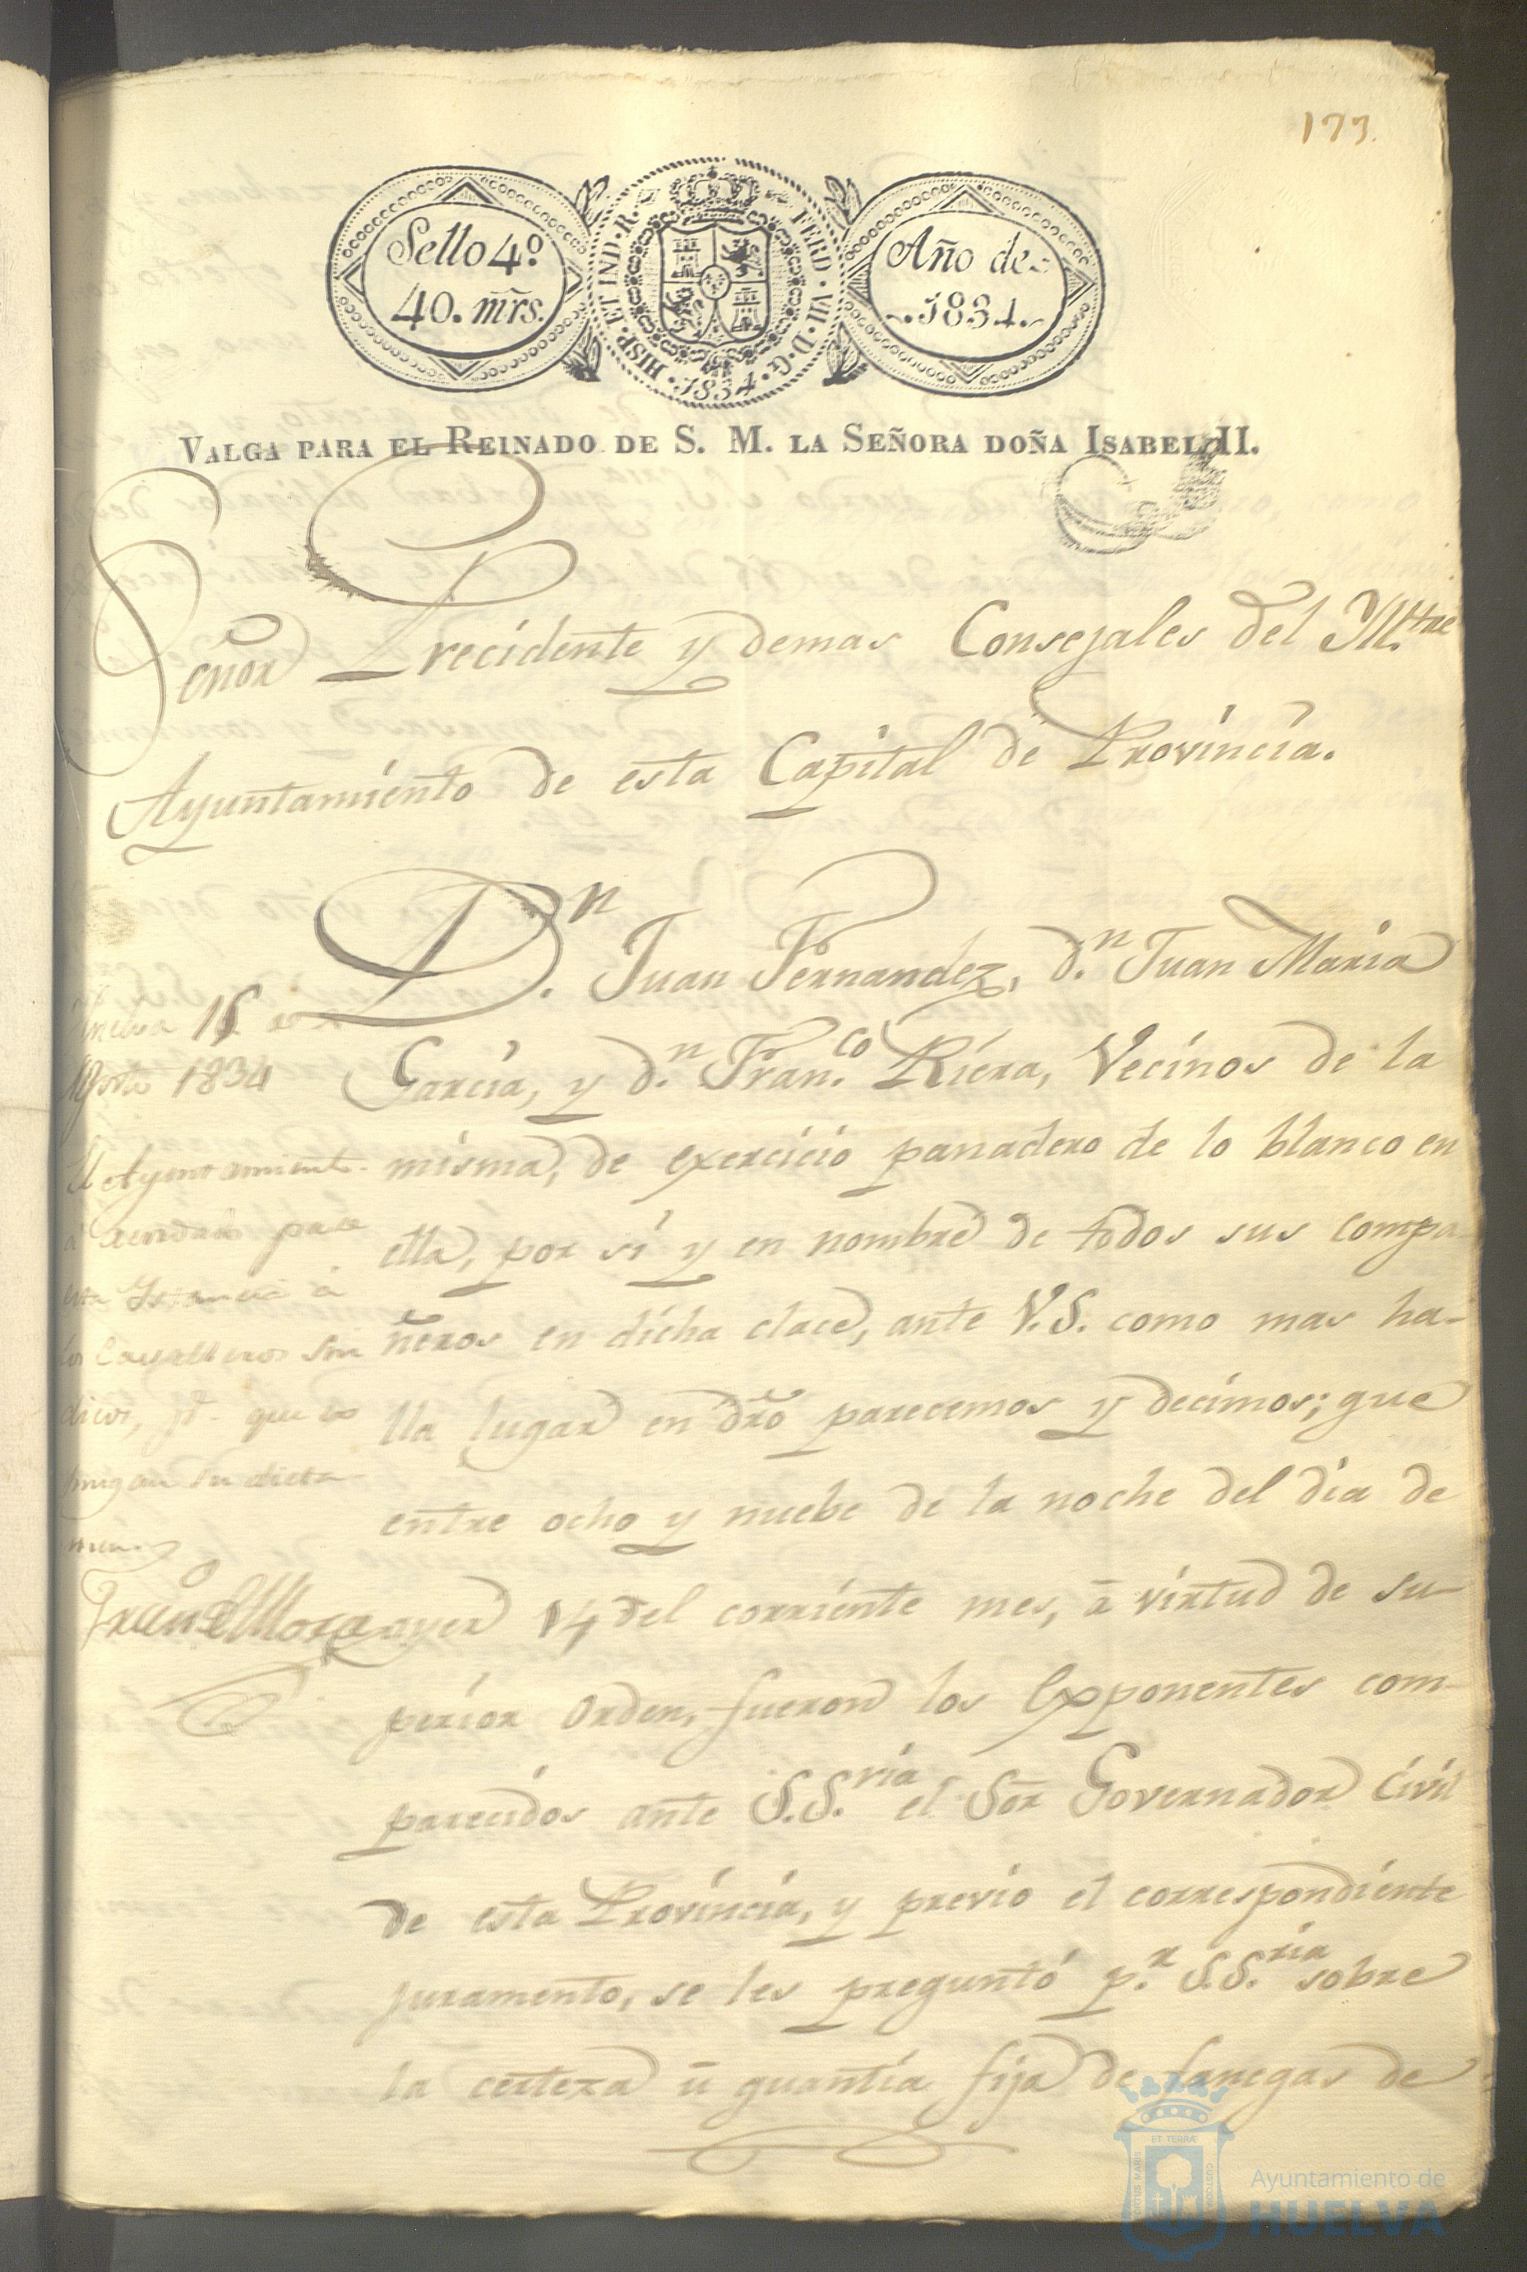 173.
Sello 4º
40. mrs.
HISP. ET IND. R.
FERD. VII. D. G.
1834.
Año de
1834.
VALGA PARA EL REINADO DE S. M. LA SEÑORA DOÑA ISABEL II.
Señor Precidente y demas Consejales del Yll.tre
Ayuntamiento de esta Capital de Provincia.
D.n Juan Fernandez, d.n Juan Maria
Garcia, y d.n Fran.co Riera, Vecinos de la
misma, de exercicio panadero de lo blanco en
ella, por si y en nombre de todos sus compa-
ñeros en dicha clace, ante V.S. como mas ha-
lla lugar en dro parecemos y decimos; que
entre ocho y nuebe de la noche del dia de
ayer 14 del corriente mes, á virtud de su-
perior orden, fueron los exponentes com-
parecidos ante S.S.ria el Sor Governador Civil
de esta Provincia, y previo el correspondiente
juramento, se les preguntó p.r S.S.ria sobre
la certeza ú quantia fija de fanegas de
Huelva 15 de
Agosto 1834
El Ayuntamiento
á acordado pase
esta Istancia á
los Cavalleros Sin
dicos, pª que ex
pongan su dicta
men.
ET TERRÆ
PORTUS MARIS
CUSTODIA
Ayuntamiento de
HUELVA